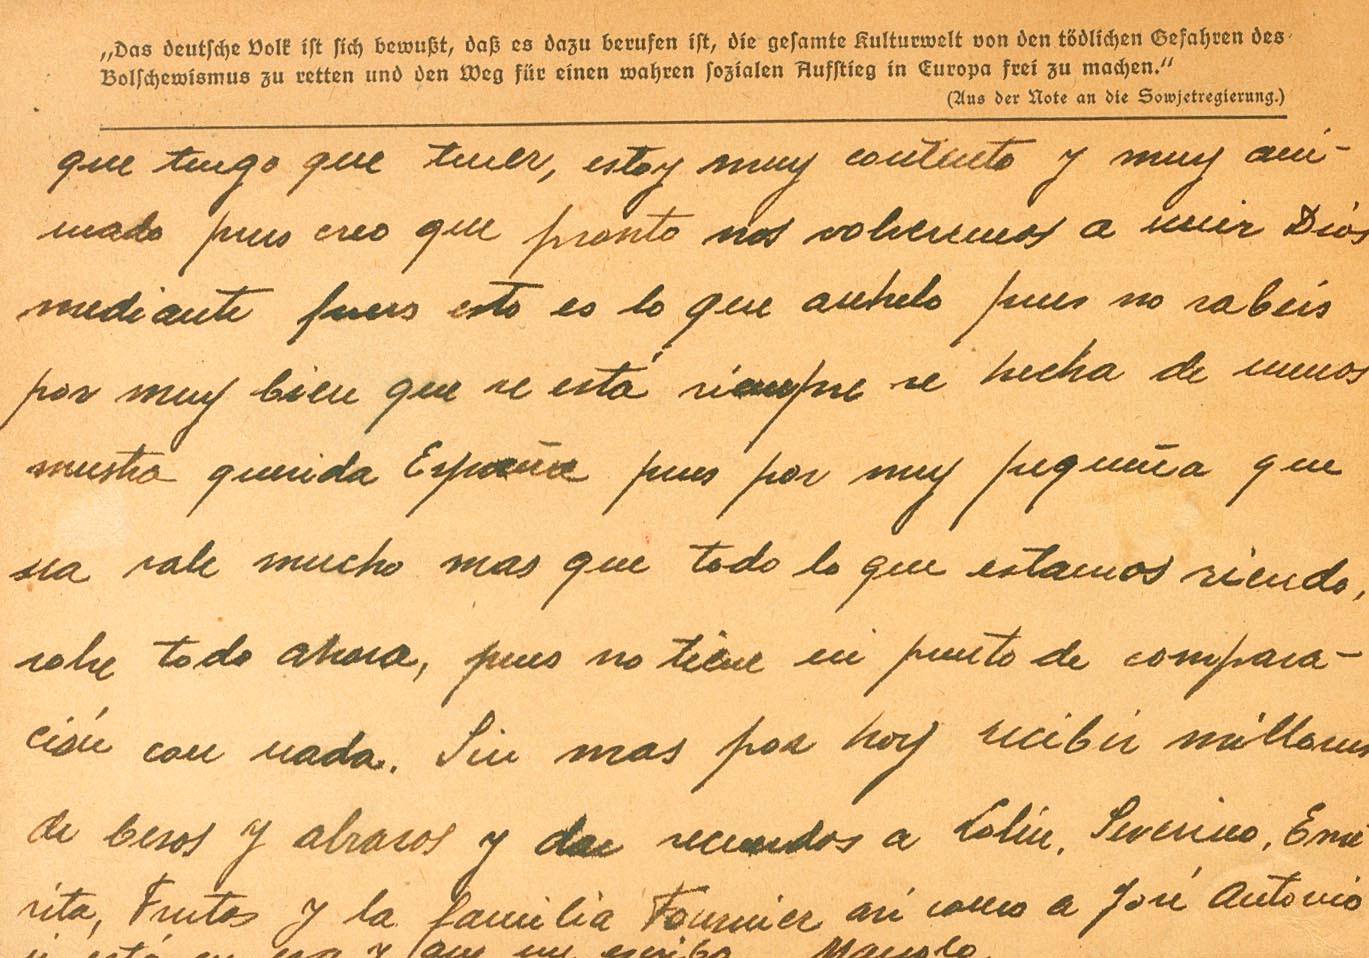 „Das deutsche Volk ist sich bewußt, daß es dazu berufen ist, die gesamte Kulturwelt von den tödlichen Gefahren des
Bolschewismus zu retten und den Weg für einen wahren sozialen Aufstieg in Europa frei zu machen.“
(Aus der Note an die Sowjetregierung.)
que tengo que tener, estoy muy contento y muy ani-
mado pues creo que pronto nos volveremos a unir Dios
mediante pues esto es lo que anhelo pues no sabeis
por muy bien que se está siempre se hecha de menos
nuestra querida España pues por muy pequeña que
sea vale mucho mas que todo lo que estamos viendo,
sobre todo ahora, pues no tiene ni punto de compara-
ción con nada. Sin mas por hoy recibir millones
de besos y abrasos y dar recuerdos a Lolin, Severino, Eme
rita, Frutos y la familia Fournier asi como a José Antonio
si está en esa y que me escriba. Manolo